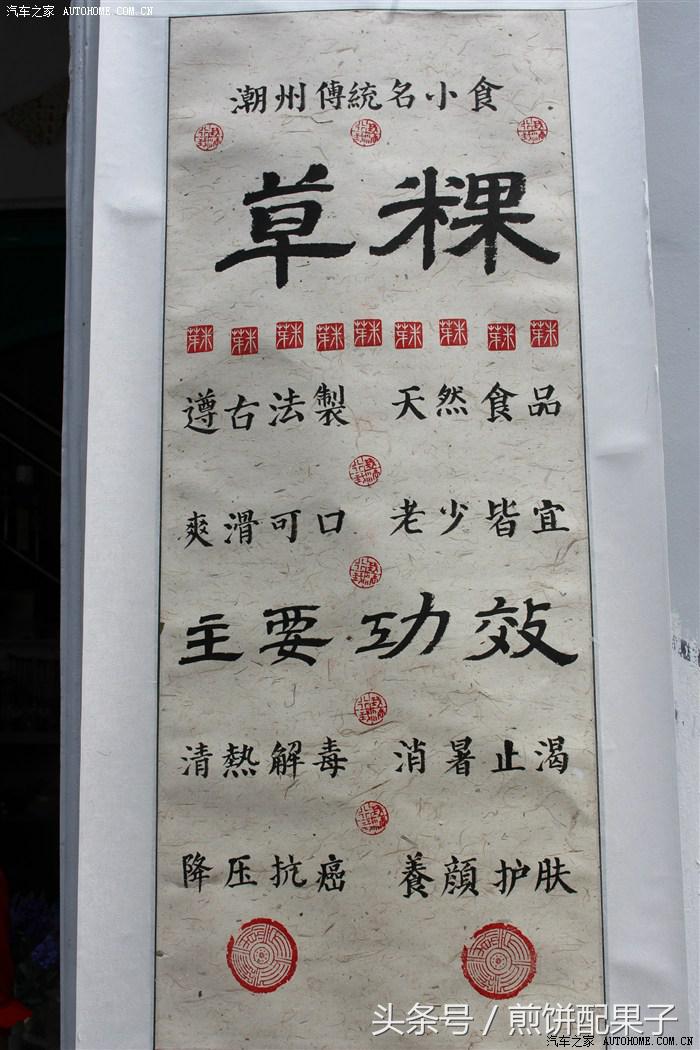 汽车之家 AUTOHOME.COM.CN
潮州傳統名小食
草粿
遵古法製 天然食品
爽滑可口 老少皆宜
主要功效
清熱解毒 消暑止渴
降压抗癌 養顔护肤
头条号 / 煎饼配果子
汽车之家 AUTOHOME.COM.CN